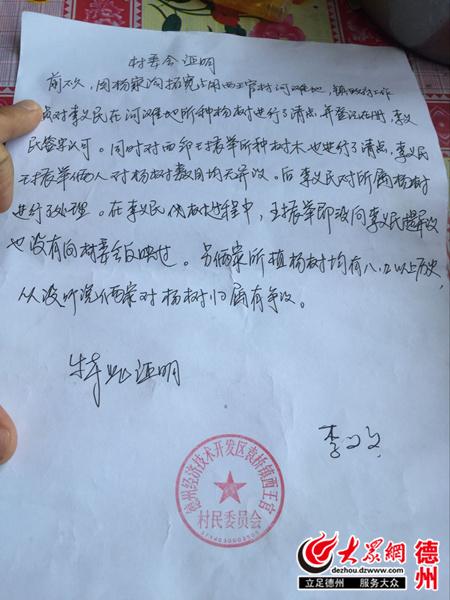 村委会证明
前不久,因杨家沟拓宽占用西王官村河滩地,镇政府工作
员对李义民在河滩地所种杨树进行了清点,并登记在册,李义
民签字认可。同时对西邻王振举所种树木也进行了清点,李义民
王振举俩人对杨树数目均无异议。后李义民对所属杨树
进行了处理。在李义民伐树过程中,王振举即没向李义民提异议
也没有向村委会反映过。另俩家所植杨树均有八、九以上历史,
从没听说俩家对杨树归属有争议。
特此证明
李
德州经济技术开发区袁桥镇西王官
村民委员会
大众網 德州
dezhou.dzwww.com
立足德州 服务大众